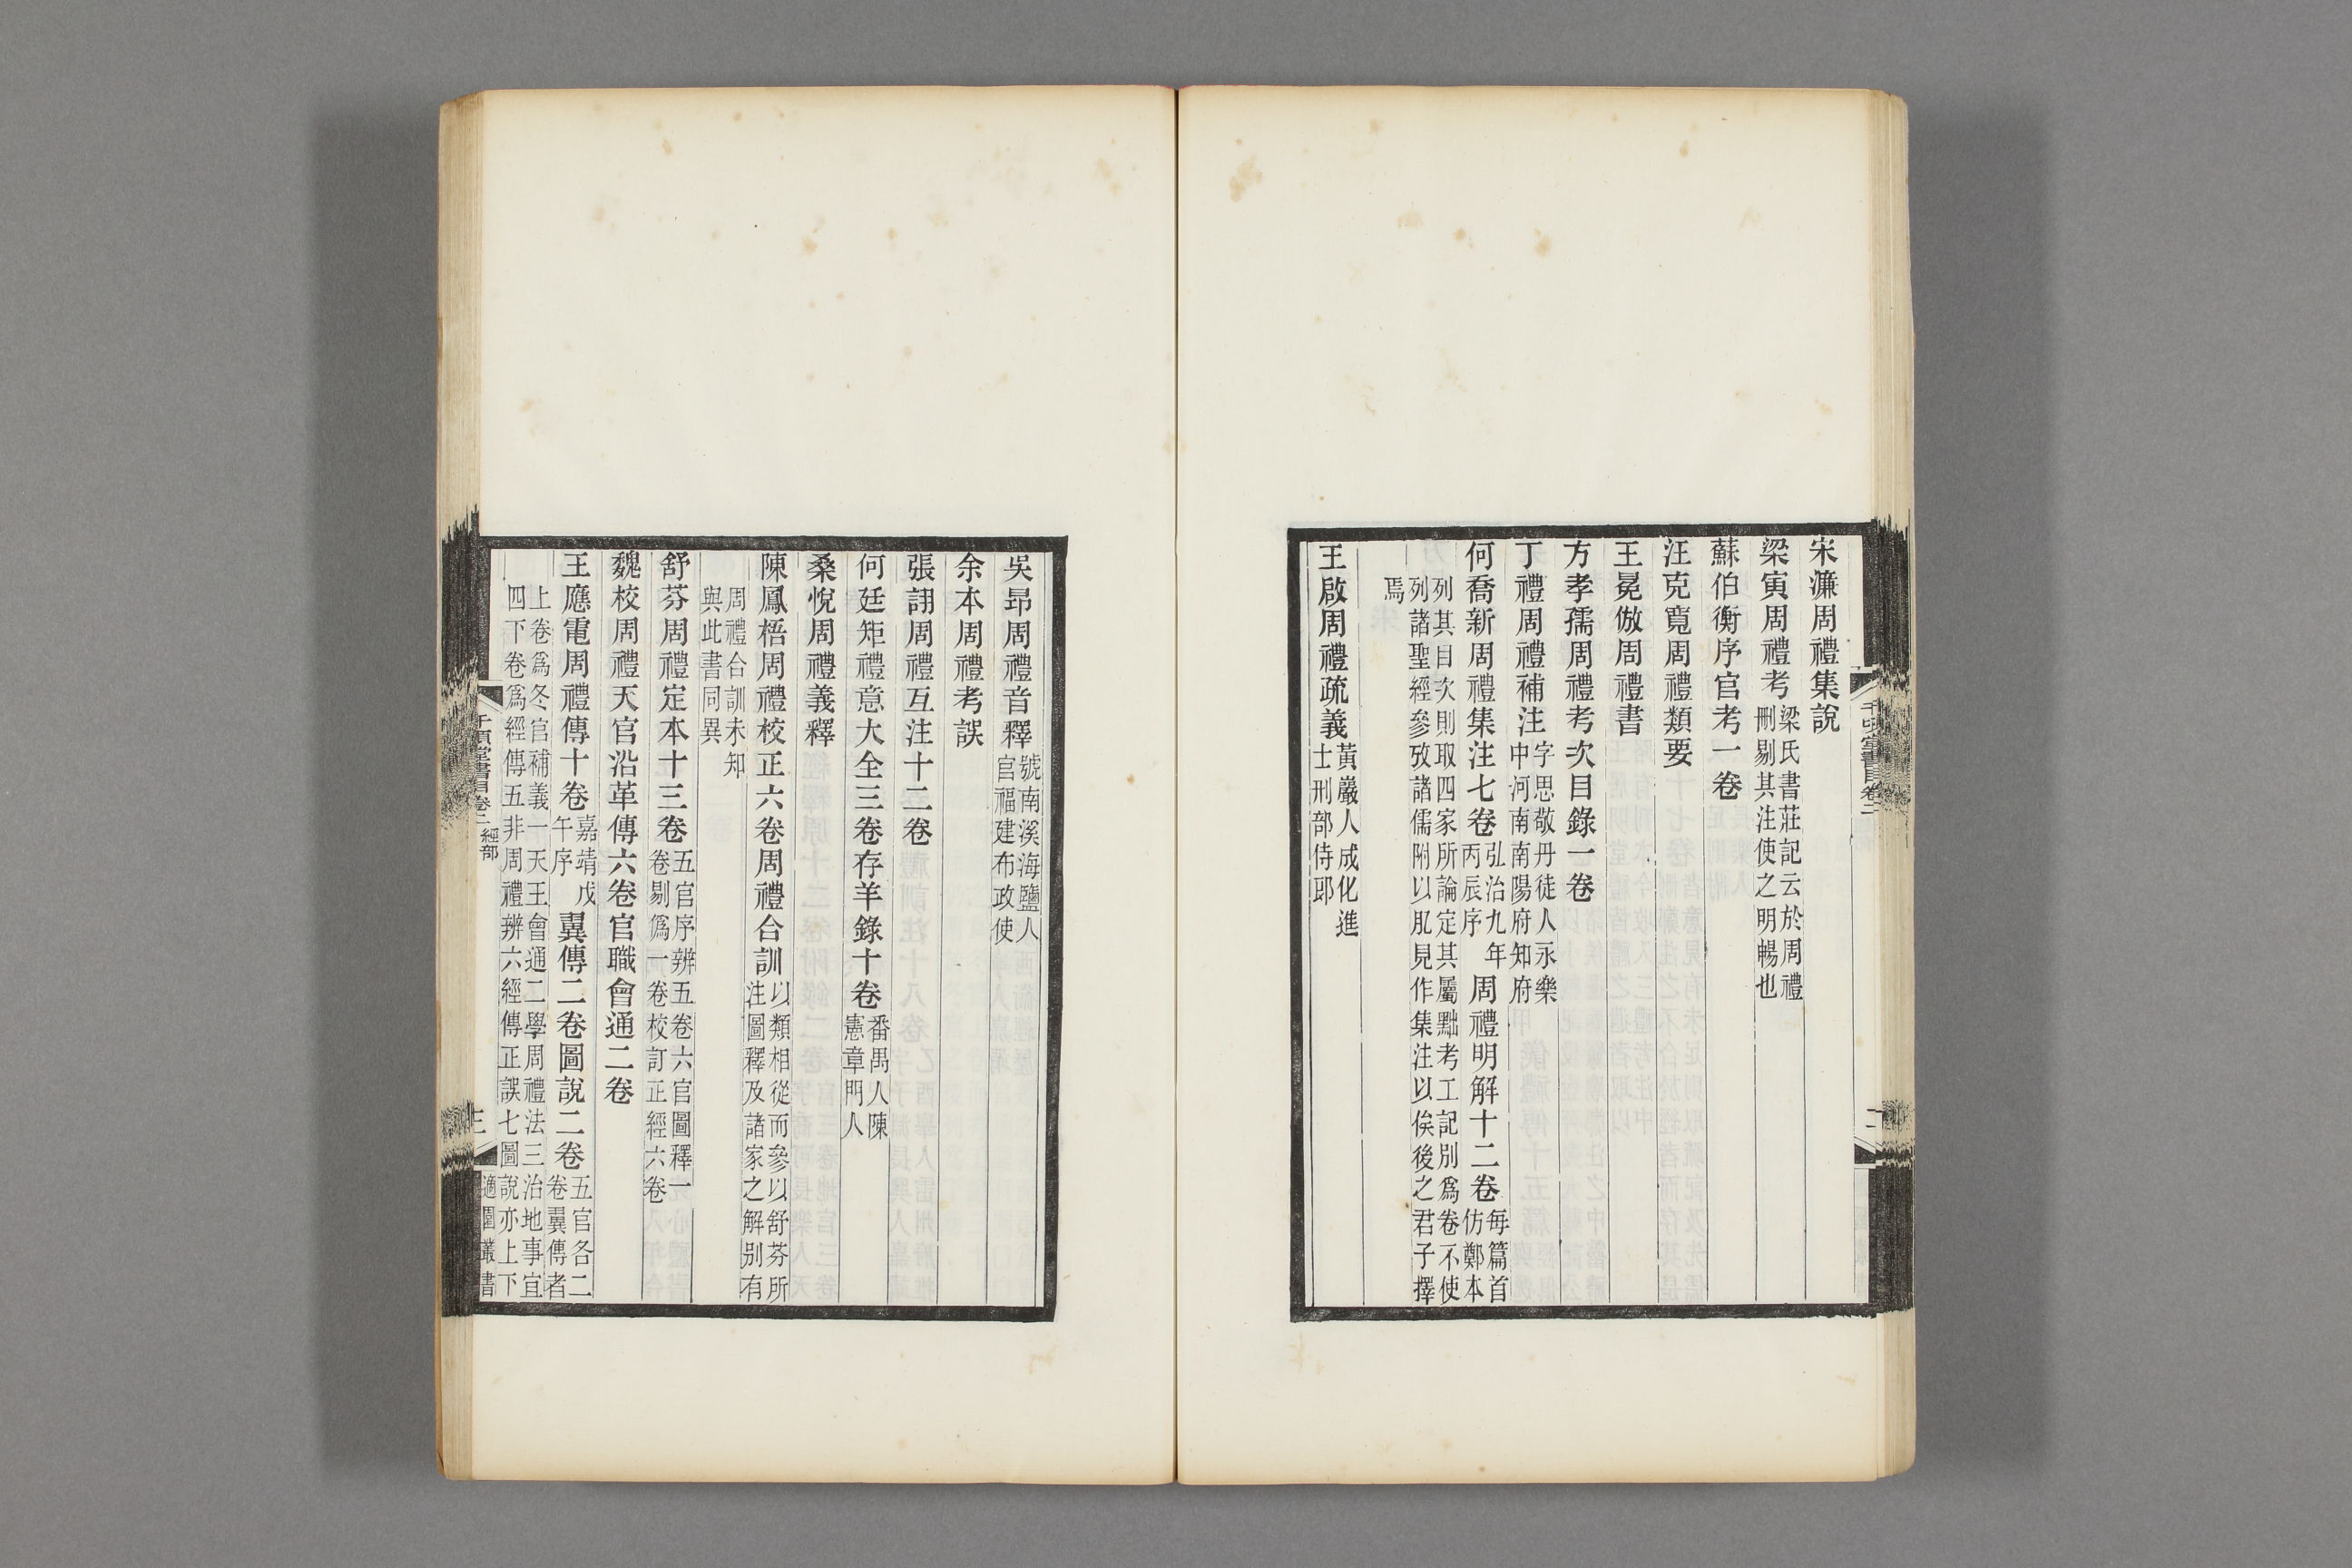 宋濂周禮集說
梁寅周禮考梁氏書莊記云於周禮刪剔其注使之明暢也
蘇伯衡序官考一卷
汪克寬周禮類要
王冕倣周禮書
方孝孺周禮考次目錄一卷
丁禮周禮補注字思敬丹徒人永樂中河南南陽府知府
何喬新周禮集注七卷弘治九年丙辰序周禮明解十二卷每篇首仿鄭本
列其目次則取四家所論定其屬黜考工記別爲卷不使列諸聖經參攷諸儒附以肊見作集注以俟後之君子擇
焉
王啟周禮疏義黃巖人成化進士刑部侍郎
千頃堂書目卷二
二
吳昂周禮音釋號南溪海鹽人官福建布政使
余本周禮考誤
張詡周禮互注十二卷
何廷矩禮意大全三卷存羊錄十卷番禺人陳憲章門人
桑悅周禮義釋
陳鳳梧周禮校正六卷周禮合訓以類相從而參以舒芬所注圖釋及諸家之解别有
周禮合訓未知與此書同異
舒芬周禮定本十三卷五官序辨五卷六官圖釋一卷剔僞一卷校訂正經六卷
魏校周禮天官沿革傳六卷官職會通二卷
王應電周禮傳十卷嘉靖戊午序翼傳二卷圖說二卷五官各二卷翼傳者
上卷爲冬官補義一天王會通二學周禮法三治地事宜四下卷爲經傳五非周禮辨六經傳正誤七圖說亦上下
千頃堂書目卷二 經部
三
適園叢書